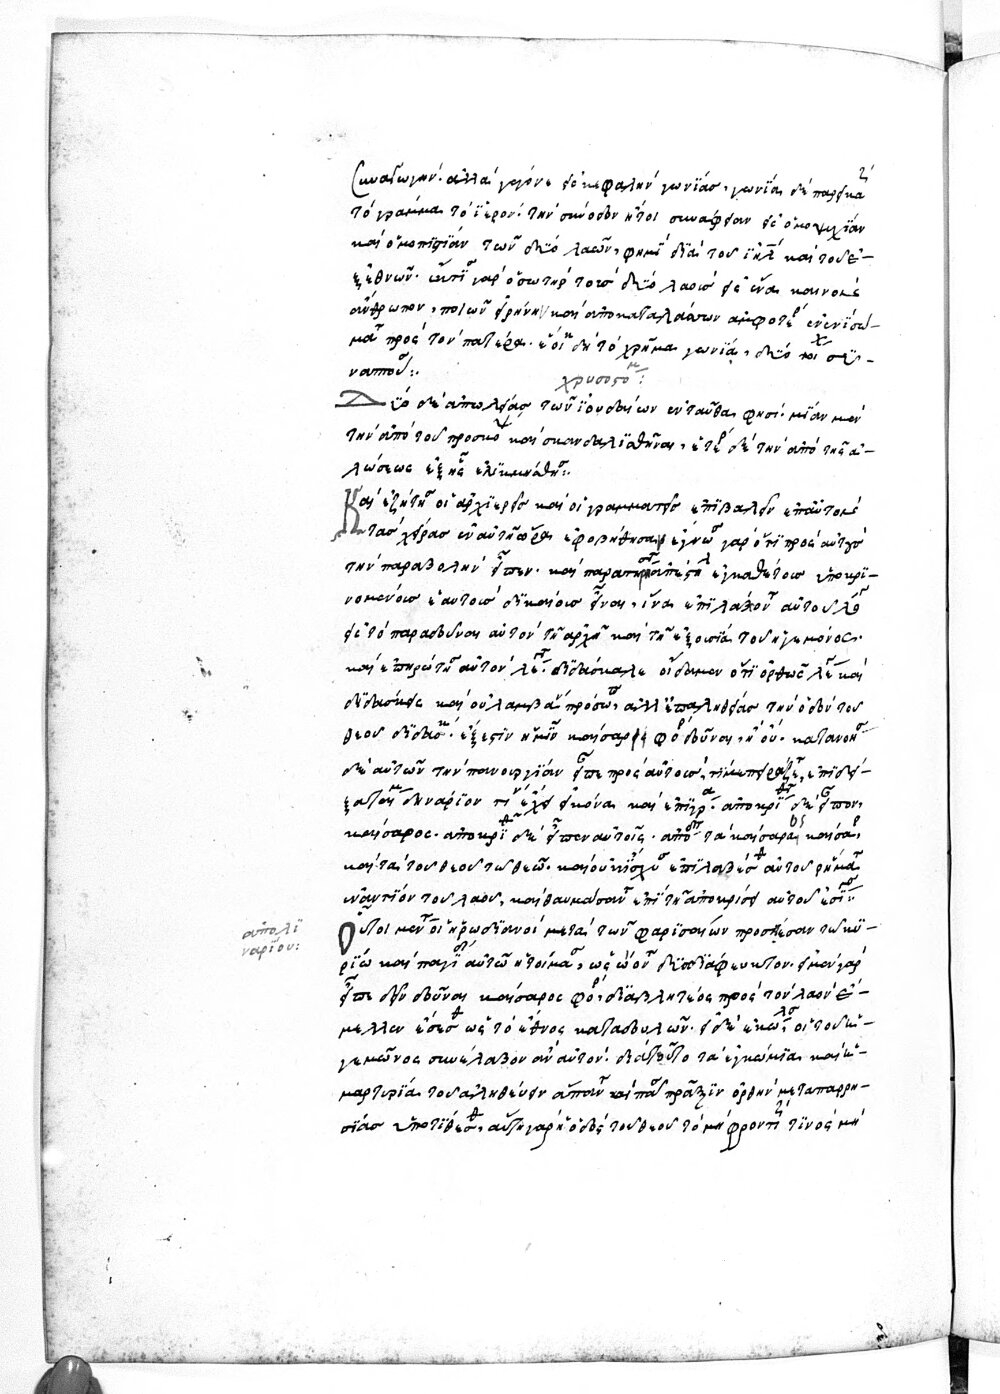 συναγωγήν. ἀλλὰ γέγονε εἰς κεφαλὴν γωνίας, γωνίαν δὲ παρεικάζει
τὸ γράμμα τὸ ἱερὸν. τὴν σύνοδον ἤτοι συνάφειαν εἰς ὁμοψυχίαν
καὶ ὁμοπιστίαν τῶν δύο λαῶν, φημὶ διὰ τοῦ ἰηλ καὶ τοῦ ἐ-
ξ ἐθνῶν. ἔκτισε γὰρ ὁ σωτὴρ τοὺς δύο λαοὺς εἰς ἕνα καινὸν
ἄνθρωπον, ποιῶν εἰρήνην καὶ ἀποκαταλάσσων ἀμφοτέρους ἐν ἑνὶ σώ-
ματι πρὸς τὸν πατέρα. ἔοικε δὴ τὸ χρῆμα γωνίᾳ, δύο
χρυσοστομ:
Δύο δὲ ἀπωλείας τῶν ἰουδαίων ἐνταῦθα φησί. μίαν μὲν
τὴν ἀπὸ τοῦ προσκόψαι καὶ σκανδαλισθῆναι, ἑτέραν δὲ τὴν ἀπὸ τῆς ἁ-
λώσεως
Καὶ ἐζήτησαν οἱ ἀρχιερεῖς καὶ οἱ γραμματεῖς ἐπιβαλεῖν ἐπ' αὐτὸν
τὰς χεῖρας ἐν αὐτῇ τῇ ὥρᾳ ἐφοβήθησαν ἔγνωσαν γὰρ ὅτι πρὸς αὐτοὺς
τὴν παραβολὴν εἶπεν. καὶ παρατηρήσαντες ἀπέστειλαν ἐγκαθέτους ὑποκρι-
νομένους ἑαυτοὺς δικαίους εἶναι, ἵνα ἐπιλάβωνται αὐτοῦ λόγου
εἰς τὸ παραδοῦναι αὐτὸν τῇ ἀρχῇ καὶ τῇ ἐξουσίᾳ τοῦ ἡγεμόνος.
καὶ ἐπηρώτησαν αὐτὸν λέγοντες. διδάσκαλε οἴδαμεν ὅτι ὀρθῶς λέγεις καὶ
διδάσκεις καὶ οὐ λαμβάνεις πρόσωπον, ἀλλ' ἐπ' ἀληθείας τὴν ὁδὸν τοῦ
θεοῦ διδάσκεις. ἔξεστιν ἡμῖν καίσαρι φόρον δοῦναι, ἢ οὔ. κατανοήσας
δὲ αὐτῶν τὴν πανουργίαν εἶπε πρὸς αὐτούς, τί με πειράζετε, ἐπιδεί-
ξατέ μοι δηνάριον τίνος ἔχει εἰκόνα καὶ ἐπιγραφήν. ἀποκριθέντες δὲ εἶπον,
καίσαρος. ἀποκριθεὶς δὲ εἶπεν αὐτοῖς. ἀπόδοτε τὰ καίσαρος καίσαρι
καὶ τὰ τοῦ θεοῦ τῷ θεῷ. καὶ οὐκ ἴσχυσαν ἐπιλαβέσθαι αὐτοῦ ῥήματος
ἐναντίον τοῦ λαοῦ, καὶ θαυμάσαντες ἐπὶ τῇ ἀποκρίσει αὐτοῦ ἐσίγησαν
ἀπολι
ναρίου:
Οὗτοι μὲν οἱ ἡρωδιανοὶ μετὰ τῶν φαρισαίων προσίεσαν τῷ κυ-
ρίῳ καὶ παγίδα αὐτῷ ἡτοίμασαν, ὡς ᾤοντο δυσδιάφευκτον. εἰ μὲν γὰρ
εἶπε δεῖν δοῦναι καίσαρος φόρον, διαβλητέος πρὸς τὸν λαὸν ἔ-
μελλεν ἔσεσθαι ὡς τὸ ἔθνος καταδουλῶν. εἰ δὲ ἐκώλυσεν, οἱ τοῦ ἡ-
γεμῶνος συνέλαβον ἂν αὐτόν. διὰ τοῦτο τὰ ἐγκώμια καὶ ἡ
μαρτυρία τοῦ ἀληθεύειν ἅπαντα καὶ πᾶσαν πρᾶξιν ὀρθὴν μετὰ παρρη-
σίας ὑποτίθεσθαι, αὕτη γὰρ ἡ ὁδὸς τοῦ θεοῦ τὸ μὴ φροντίζειν τινὸς μὴ